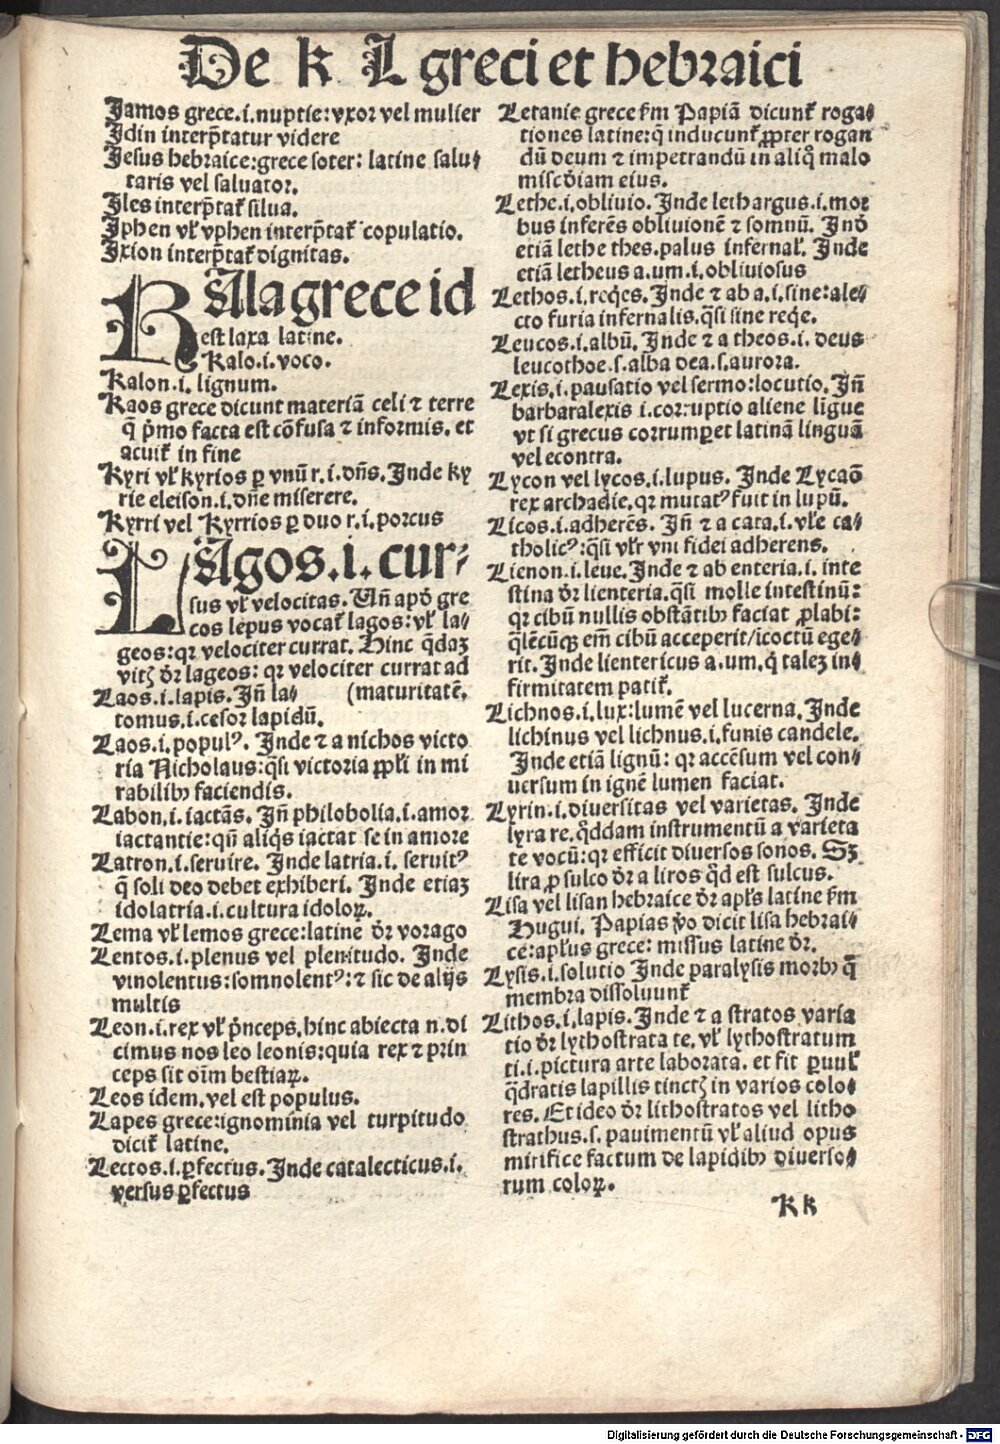 De k L greci et hebraici
Jamos grece.i.nuptie:vxor vel mulier
Idin interp̃tatur videre
Jesus hebraice:grece soter: latine salu⸗
taris vel saluator.
Iles interp̃taꝉ silua.
Iphen vꝉ vphen interp̃taꝉ copulatio.
Ixion interp̃taꝉ dignitas.
KAla grece id
est laxa latine.
Kalo.i.voco.
Kalon.i. lignum.
Kaos grece dicunt materiā celi ⁊ terre
q̄ p̄mo facta est cōfusa ⁊ informis. et
acuiꝉ in fine
Kyri vꝉ kyrios ꝑ vnū r.i.dn̄s. Inde ky
rie eleison.i.dn̄e miserere.
Kyrri vel Kyrrios ꝑ duo r.i.porcus
LAgos.i.cur⸗
sus vꝉ velocitas. Vn̄ apd̓ gre
cos lepus vocaꝉ lagos: vꝉ la⸗
geos: qꝛ velociter currat. Hinc q̄daꝫ
vitꝭ dꝛ lageos: qꝛ velociter currat ad
Laos.i.lapis. Jn̄ la⸗ (maturitatē.
tomus.i.cesor lapidū.
Laos.i.populꝰ. Inde ⁊ a nichos victo
ria Nicholaus:q̄si victoria ꝓpl̓i in mi
rabilibꝫ faciendis.
Labon.i.iactās. Jn̄ philobolia.i.amor
iactantie:qn̄ aliq̓s iactat se in amore
Latron.i.seruire. Inde latria.i. seruitꝰ
q̄ soli deo debet exhiberi. Inde etiaꝫ
idolatria.i.cultura idoloꝝ.
Lema vꝉ lemos grece:latine dꝛ vorago
Lentos.i.plenus vel plenitudo. Inde
vinolentus:somnolentꝰ:⁊ sic de alijs
multis
Leon.i.rex vꝉ p̓nceps.hinc abiecta n.di
cimus nos leo leonis:quia rex ⁊ prin
ceps sit oīm bestiaꝝ.
Leos idem.vel est populus.
Lapes grece:ignominia vel turpitudo
diciꝉ latine.
Lectos.i.ꝑfectus. Inde catalecticus.i.
versus ꝑfectus
Letanie grece ẜm Papiā dicunꝉ roga⸗
tiones latine:q̓ inducunꝉ ꝓpter rogan
dū deum ⁊ impetrandū in aliq̊ malo
misc̓diam eius.
Lethe.i.obliuio. Inde lethargus.i.mor
bus inferēs obliuionē ⁊ somnū. Ind̓
etiā lethe thes.palus infernaꝉ. Inde
etiā letheus a.um.i.obliuiosus
Lethos.i.req̓es. Inde ⁊ ab a.i.sine:ale⸗
cto furia infernalis.q̄si sine req̓e.
Leucos.i.albū. Inde ⁊ a theos.i. deus
leucothoe.s.alba dea.s.aurora.
Lexis.i.pausatio vel sermo:locutio. Jn̄
barbaralexis i.corruptio aliene ligue
vt si grecus corrumꝑet latinā linguā
vel econtra.
Lycon vel lycos.i.lupus. Inde Lycaō
rex archadie.qꝛ mutatꝰ fuit in lupū.
Licos.i.adherēs. Jn̄ ⁊ a cata.i.vꝉe ca⸗
tholicꝰ:q̄si vꝉr vni fidei adherens.
Lienon.i.leue. Inde ⁊ ab enteria.i. inte
stina dꝛ lienteria.q̄si molle intestinū:
qꝛ cibū nullis obstātibꝫ faciat ꝓlabi:
q̄lēcūqꝫ em̄ cibū acceperit/icoctū ege⸗
rit. Inde lientericus a.um.q̓ taleꝫ in⸗
firmitatem patiꝉ.
Lichnos.i.lux:lumē vel lucerna. Inde
lichinus vel lichnus.i.funis candele.
Inde etiā lignū: qꝛ accēsum vel con⸗
uersum in ignē lumen faciat.
Lyrin.i.diuersitas vel varietas. Inde
lyra re.q̊ddam instrumentū a varieta
te vocū:qꝛ efficit diuersos sonos. Sꝫ
lira ꝓ sulco dꝛ a liros q̊d est sulcus.
Lisa vel lisan hebraice dꝛ apl̓s latine ẜm
Hugui. Papias v̊o dicit lisa hebrai⸗
ce:apl̓us grece: missus latine dꝛ.
Lysis.i.solutio Inde paralysis morbꝫ q̄
membra dissoluunꝉ
Lithos.i.lapis. Inde ⁊ a stratos varia
tio dꝛ lythostrata te.vꝉ lythostratum
ti.i.pictura arte laborata. et fit ꝑuuꝉ
q̄dratis lapillis tinctꝭ in varios colo⸗
res. Et ideo dꝛ lithostratos vel litho
strathus.s. pauimentū vꝉ aliud opus
mirifice factum de lapidibꝫ diuerso⸗
rum coloꝝ.
K k
Digitalisierung gefördert durch die Deutsche Forschungsgemeinschaft - DFG